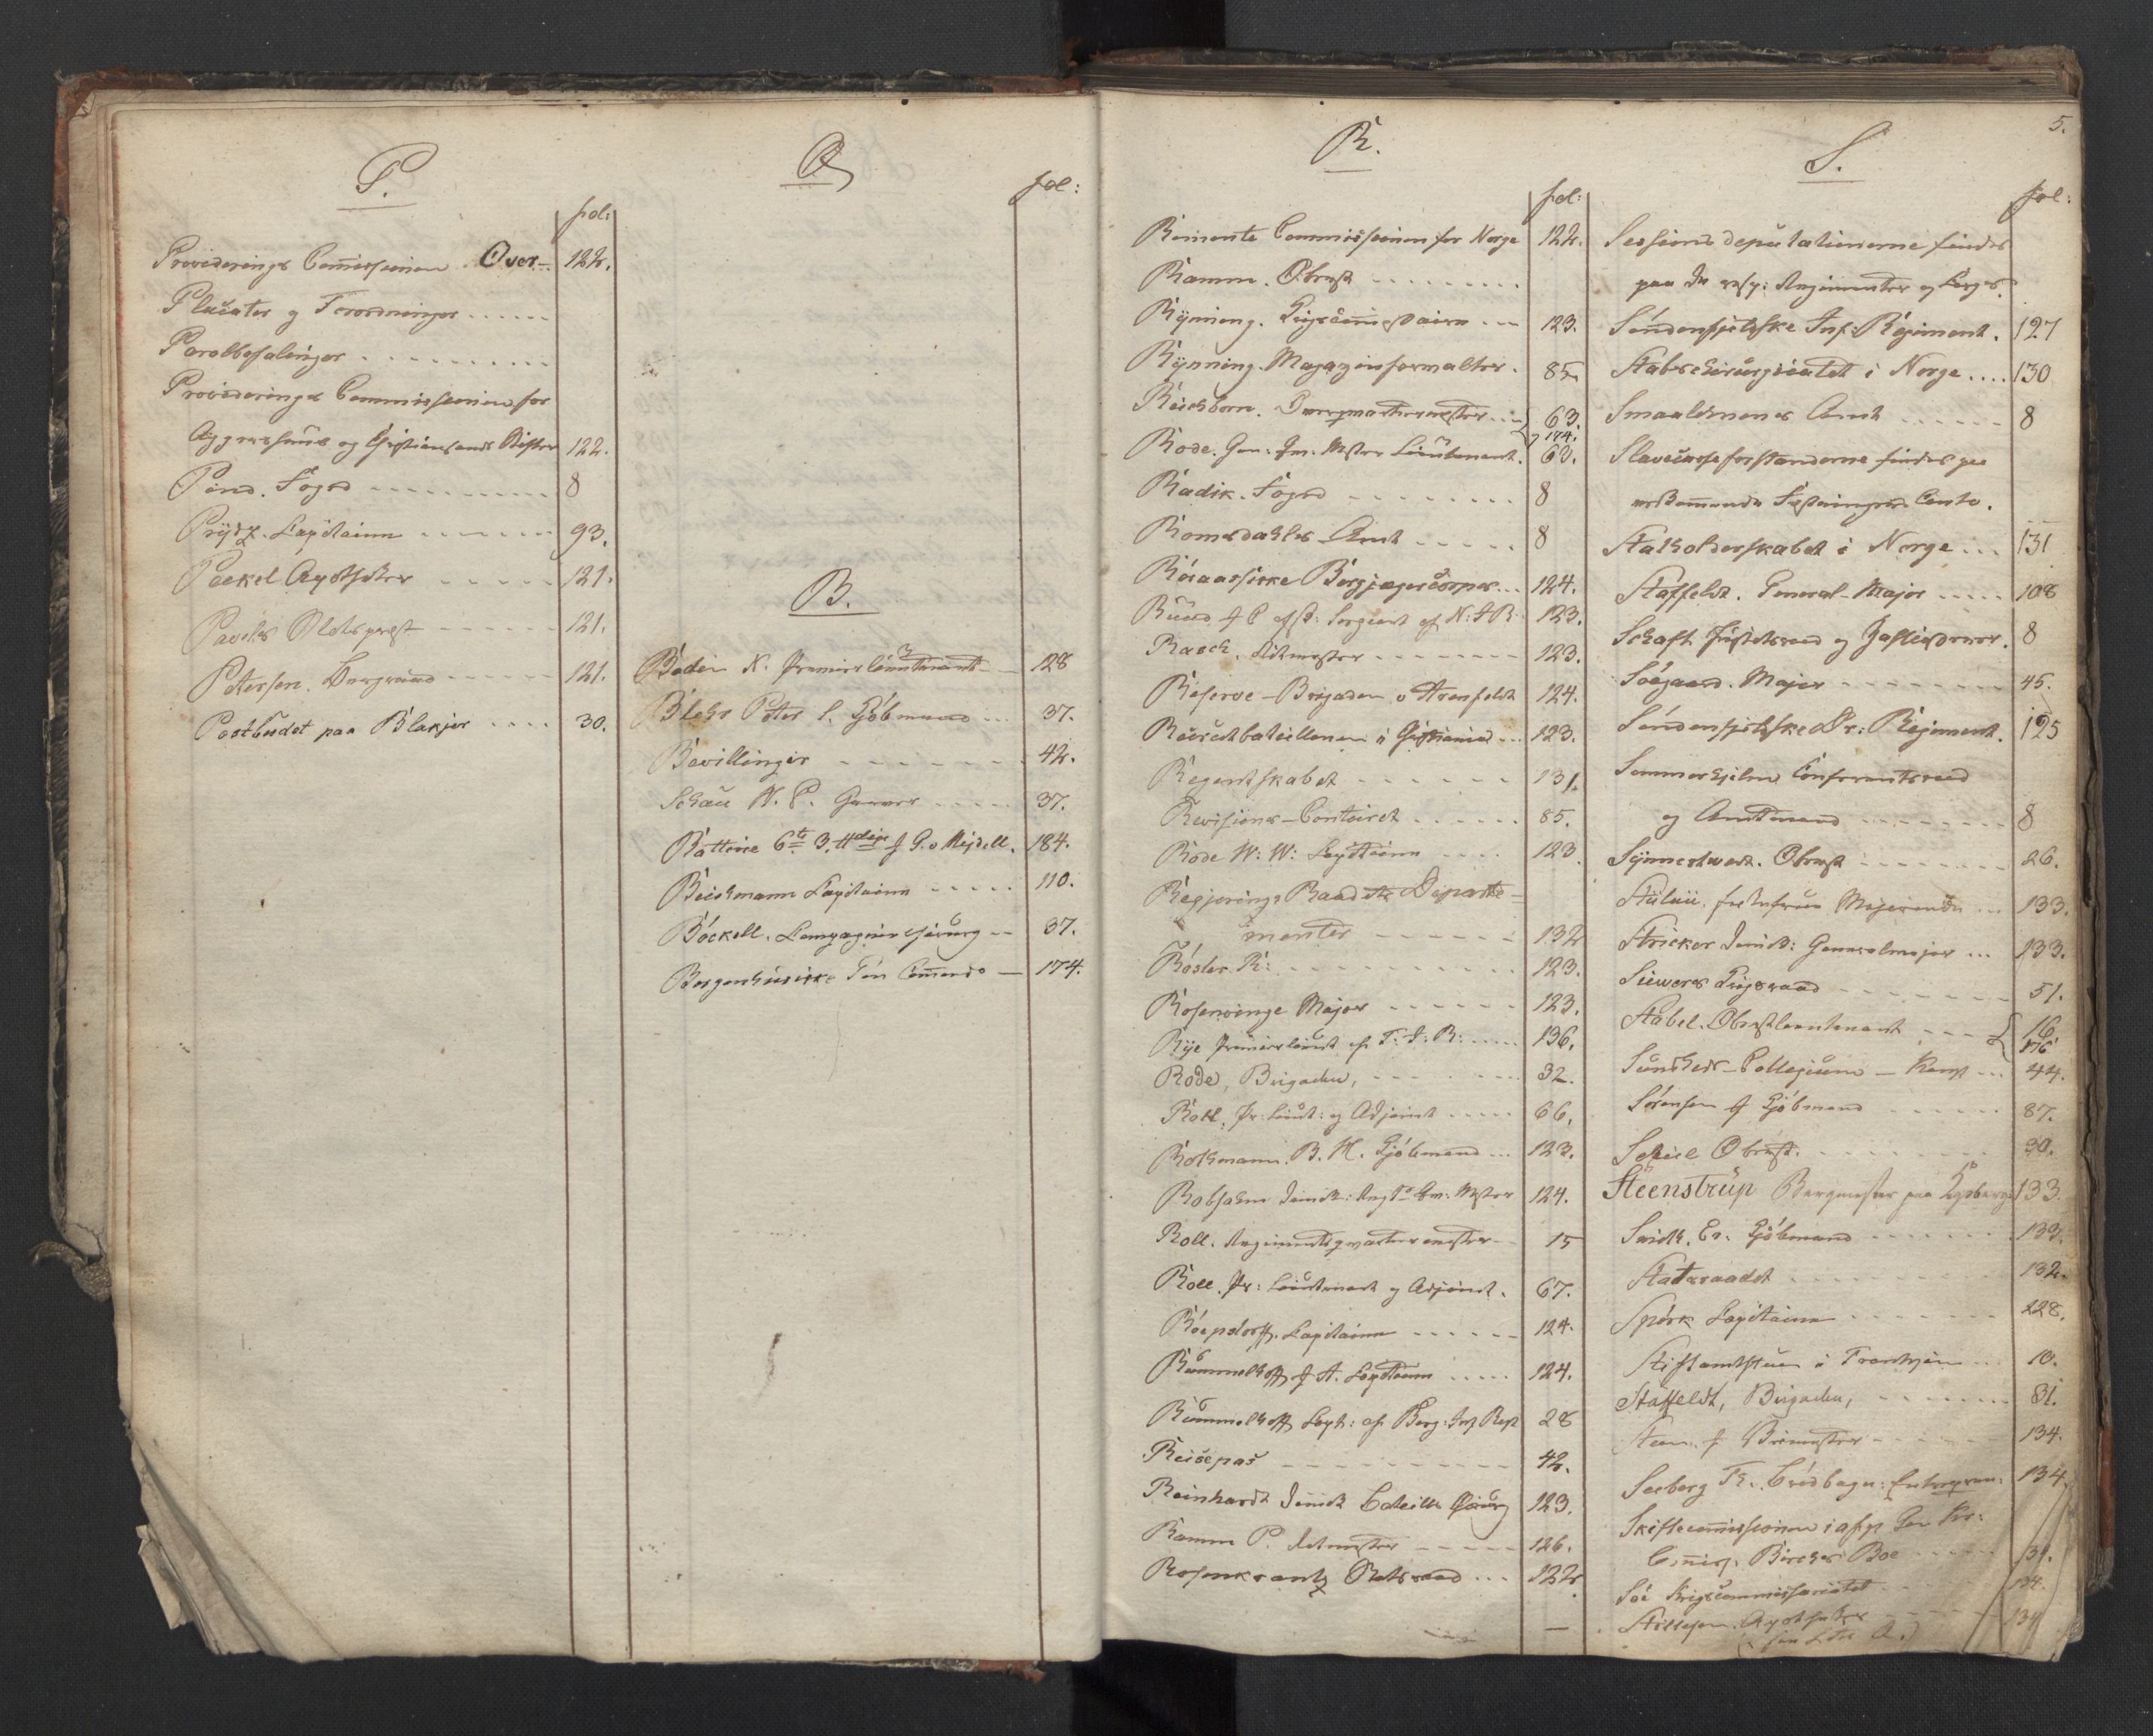 P.
fol:
Provideringss Commissionen Over- 122.
Placater og Forordninger ......
Parolbefalinger ..........
Provideringss Commissionen for
Aggershuus og Christiansands Stifter 122.
Pind. Foged ......... 8
Prydz. Capitainn ....... 93.
Poekel Apotheker ..... 121.
Pavels Slotspræst ...... 121.
Petersen. Borgraad ..... 121.
Postbudet paa Blakjer .... 30.
Q
fol:
B.
Bodin N. Premierlieutenant 128
Blehr Peter l. Kjöbmand ... 37.
Bevillinger ...... 42.
Schau N. P. Garver ..... 37.
Batterie 6te 3. ttdige f G. v Mejdell. 184.
Beichmann Capitainn ..... 110.
Böckell. Compagniechirurg -- 37.
Bergenhusiske Gen Comando — 174.
R.
fol:
Remonte Commissionen for Norge 122.
Ramm. Obrist .........
Rynning. Krigscommissairn ... 123.
Rynning. Magazinforvalter. 85.
Reichborn. Overqvarteermester... 63. 174.
Rode. Gen: Qu: Mster Lieutenant. 60.
Radik. Foged ........ 8
Romsdahls Amt ..... 8
Röraassiske Bergjægercorps... 124.
Ruud f C afsk: Sergeant af N: I R: 123.
Rasch. Ritmester ....... 123.
Reserve-Brigaden v Arenfeldt 124.
Recrutbataillonen i Christiania ... 123.
Regentskabet ...... 131.
Revisions-Contoiret ...... 85.
Rode W: W: Capitainn .... 123.
Regjerings Raadets Departe=
menter ...... 132
Rösler. R: .......... 123.
Rosenvinge Major ...... 123.
Rye Premierlieut af T: I: R: ..... 136.
Rode, Brigaden, ...... 32.
Roll, Pr: Lieut: og Adjoint ..... 66.
Rolfmann. B. H. Kjöbmand ... 123.
Robsahm Divis: Regts Qv: Mster 124.
Roll. Regimentsqvarteermester- 15
Roll. Pr: Lieutenant og Adjoint. 67.
Röepstorff. Capitainn ...... 124.
Rummelhoff f A. Capitainn ..... 124.
Rummelhoff Capt: af Berg: Inf Regt 28
Reisepas ........ 42.
Reinhardt Divis Bataills Chirurg 123.
Ramm P. Ritmester ..... 126.
Rosenkrantz Statsraad ... 122.
—
S.
5.
fol:
Sessions deputationerne findes
paa de resp: Regimenter og Corps.
Söndenfjeldske Inf: Regiment. 127
Stabschirurgicatet i Norge .... 130
Smaalenenes Amt ...... 8
Slavecasseforstanderne findes paa
vedkommende Fæstningers Conto.
Statholderskabet i Norge ... 131
Staffeldt. General-Major ..... 108
Schaft Justitsraad og 8
Söegaard. Major ........ 45.
Söndenfjeldske Dr: Regiment. 125
Sommerhjelm Conferentsraad
og Amtmand ........ 8
Synnestwedt. Obrist ....... 26.
133.
Stricker Divis: Generalmajor ... 133.
Siewers Krigsraad ....... 51.
Stabel. Obristlieutenant .... 16 176
Sundheds-Collegium — Kongl ... 44.
Sörensen f Kjöbmand ...... 87.
Schiel Obrist ........ 30.
Steenstrup Bergmester paa Kongsberg 133.
Smith. Er: Kjöbmand ...... 133.
Statsraadet ........ 132.
Spörk Capitainn ....... 228.
Stiftamtstuen i Trondhjem ... 10.
Staffeldt, Brigaden, ...... 31.
Steen. f Brimester ...... 134.
Seeberg Th. Brödbager: Entrepren: 134
Skiftecommissionen i afg: Gen Kr:
Commiss: Birchs Boe ..... 31.
Söe Krigscommissariatet ..... 134.
Stillesen. Apotheker ..... 134
(see Litr A.)